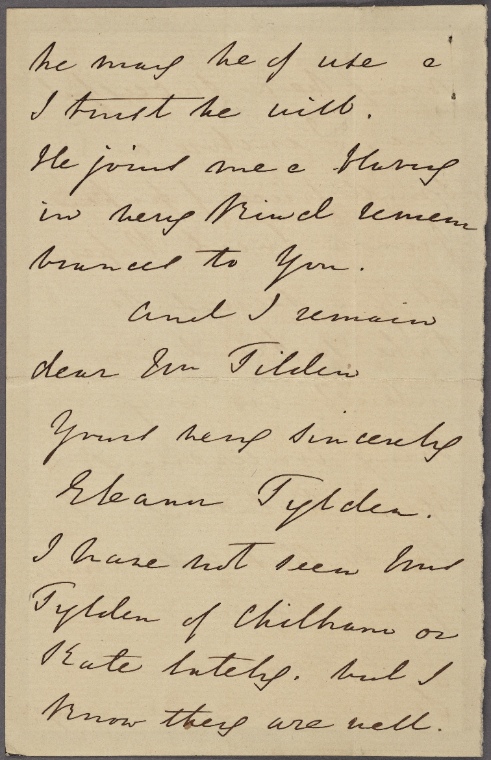 he may be of use &
I trust he will.
He joins me & Harvey
in very kind remem
brances to You.
and I remain
dear Mr Tilden
Yours very sincerely
Eleanor Tylden.
I have not seen Mrs
Tylden of Chilham or
Kate lately. but I
know they are well.